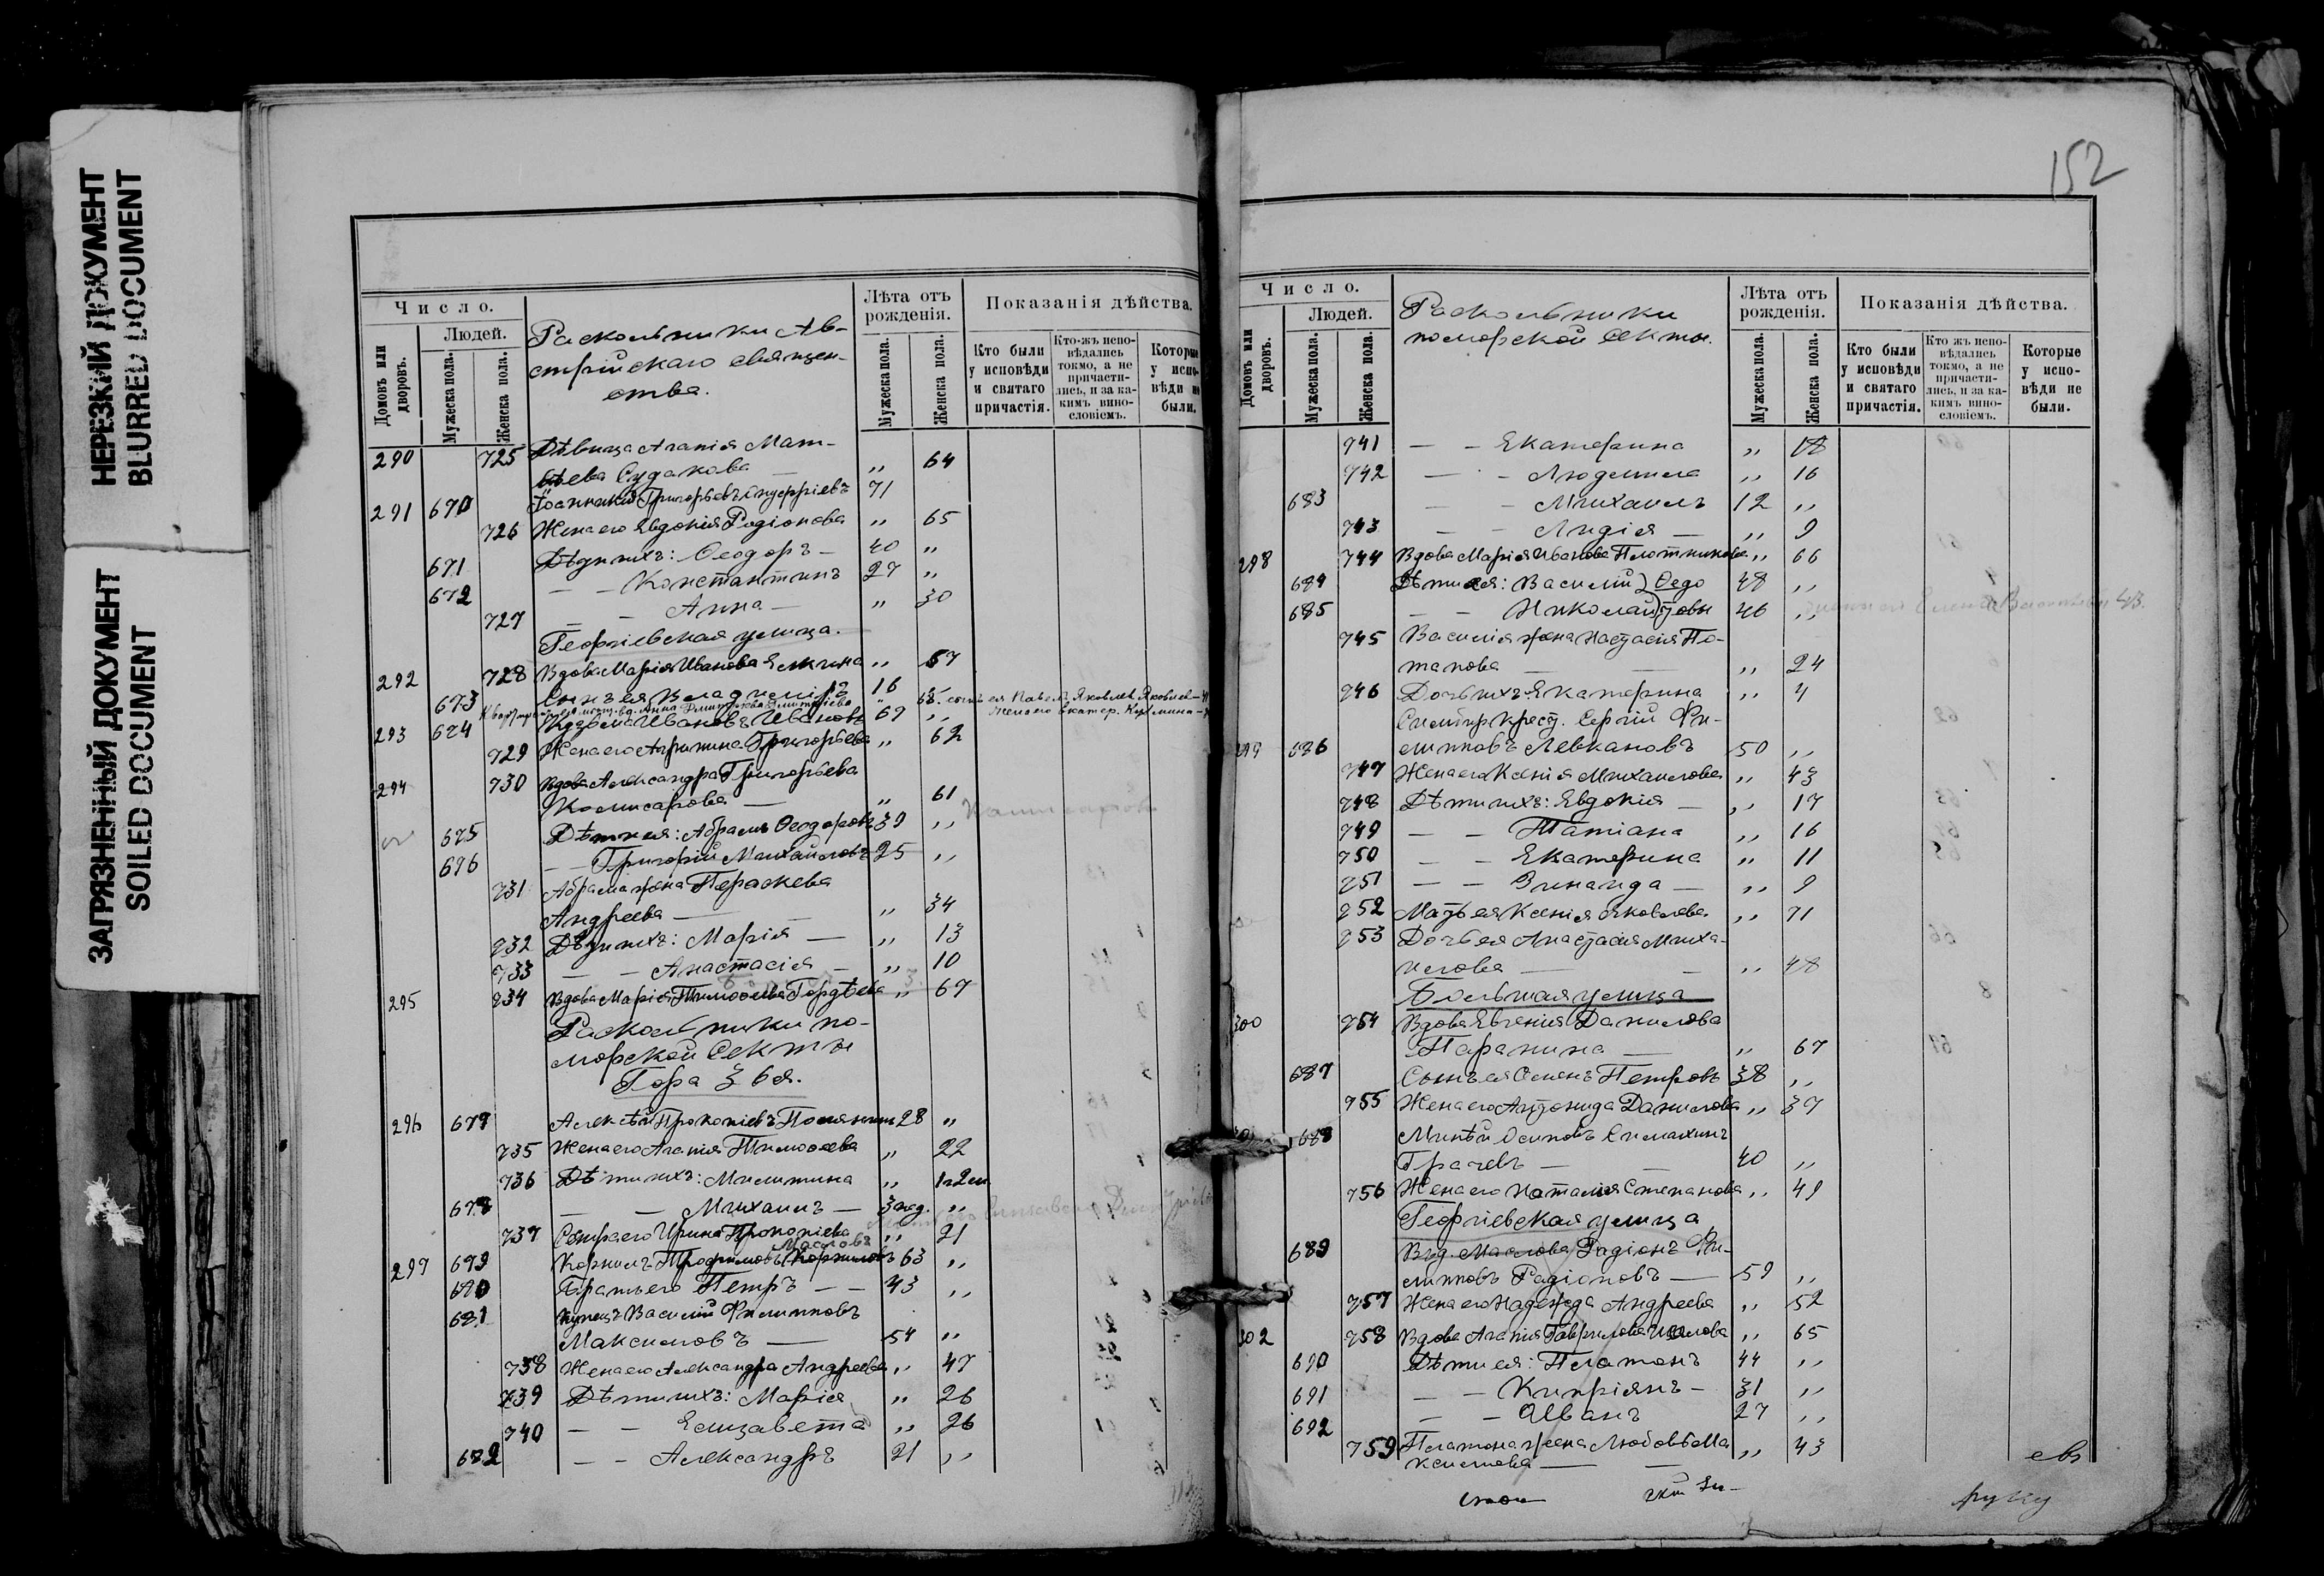 НЕРЕЗКИЙ ДОКУМЕНТ
BLURRED DOCUMENT
ЗАГРЯЗНЕННЫЙ ДОКУМЕНТ
SOILED DOCUMENT
Число.
Людей.
Домовъ или дворовъ.
Мужеска пола.
Женска пола.
Раскольники Ав-
стрійскаго священ-
ства.
Лѣта отъ рожденія.
Мужеска пола.
Женска пола.
Показанія дѣйства.
Кто были у исповѣди и святаго причастія.
Кто-жъ испо-вѣдались токмо, а не причасти-лись, и за ка-кимъ вино-словіемъ.
Которые у испо-вѣди не были.
290 725 Дѣвица Агапія Мат-
вѣева Судакова — „ 64
291 670 Іоанникій Григорьевъ Ануфріевъ 71
726 Жена его Евдокія Родіонова „ 65
671 Дѣти ихъ: Ѳеодоръ — 40 „
672 — — Константинъ 27 „
727 — — Анна — „ 30
Георгіевская улица.
292 728 Вдова Марія Иванова Елкина „ 57
673 Сынъ ея Владиміръ 16 „
293 674 Кузьма Ивановъ Ивановъ 69 „
729 Жена его Агрипина Григорьева „ 62
294 730 Вдова Александра Григорьева
Комисарова — „ 61
675 Дѣти ея: Абрамъ Ѳеодоровъ 39 „
676 — Григорій Михайловъ 25 „
731 Абрама жена Параскева
Андреева — „ 34
732 Дѣти ихъ: Марія — „ 13
733 — — Анастасія — „ 10
295 734 Вдова Марія Тимоѳеева Гордѣева „ 67
Раскольники по-
морской секты
Гора 3 бя.
296 677 Алексѣй Прокопіевъ 28 „
735 Жена его Агапія Тимоѳеева „ 22
736 Дѣти ихъ: Милитина „ 1 г 2 м
678 — — Михаилъ — 3 нед. „
737 Сестра его Ирина Прокопіева „ 21
Масловъ
297 679 Корнилъ Трофимовъ Корниловъ 63 „
680 Братъ его Петръ — — 43 „
681 Купецъ Василій Филипповъ
Максимовъ — 54 „
738 Жена его Александра Андреева „ 47
739 Дѣти ихъ: Марія „ 26
740 — — Елизавета „ 26
682 — — Александръ 21 „
152
Число.
Людей.
Домовъ или дворовъ.
Мужеска пола.
Женска пола.
Раскольники
поморской секты.
Лѣта отъ рожденія.
Мужеска пола.
Женска пола.
Показанія дѣйства.
Кто были у исповѣди и святаго причастія.
Кто жъ испо-вѣдались токмо, а не причасти-лись, и за ка-кимъ вино-словіемъ.
Которые у испо-вѣди не были.
741 — — Екатерина „ 18
742 — — Людмила „ 16
683 — — Михаилъ 12 „
743 — — Лидія — „ 9
298 744 Вдова Марія Иванова Плотникова „ 66
684 Дѣти ея: Василій } Ѳедо 48 „
685 — — Николай } товы 46 „
745 Василія жена Настасія По-
тапова — „ 24
746 Дочь ихъ Екатерина „ 4
Симбир. крест. Сергій Фи-
299 686 липповъ Левкановъ 50 „
747 Жена его Ксенія Михаилова „ 43
748 Дѣти ихъ: Евдокія — „ 17
749 — — Татіана „ 16
750 — — Екатерина „ 11
751 — — Зинаида — „ 9
752 Мать ея Ксенія Яковлева „ 71
753 Дочь ея Анастасія Миха-
илова — „ 48
Большая улица
300 754 Вдова Евгенія Данилова
Паранина — „ 67
687 Сынъ ея Осипъ Петровъ 38 „
755 Жена его Антонида Данилова „ 37
688 Миней Осиповъ Симахинъ
Грачевъ — 40 „
756 Жена его Наталія Степанова „ 49
Георгіевская улица
689 Въ д. Маслова Радіонъ Фи-
липповъ Радіоновъ — 59 „
757 Жена его Надежда Андреева „ 52
302 758 Вдова Агапія Гаврилова „ 65
690 Дѣти ея: Платонъ 44 „
691 — — Кипріянъ — 31 „
692 — — Иванъ 27 „
759 Платона жена Любовь Ма „ 43
ксимова —
руку